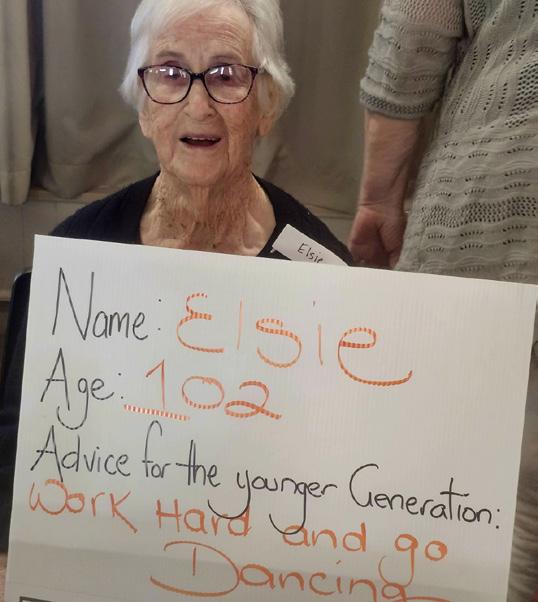 Elsie
Name: Elsie
Age: 102
Advice for the younger Generation:
Work Hard and go
Dancing